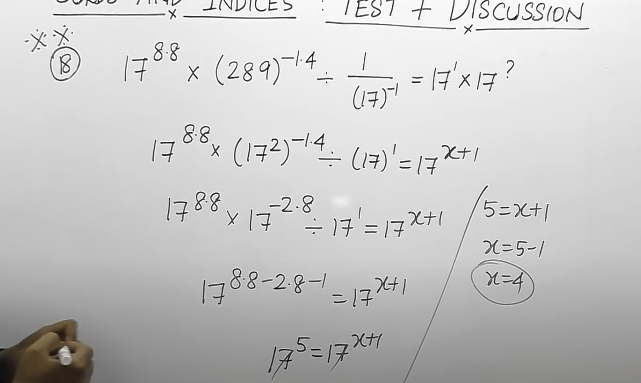 INDICES : TEST + DISCUSSION
18 17^8.8 × (289)^-1.4 ÷ 1/(17)^-1 = 17^1 × 17^?
17^8.8 × (17^2)^-1.4 ÷ (17)^1 = 17^x+1
17^8.8 × 17^-2.8 ÷ 17^1 = 17^x+1
17^8.8-2.8-1 = 17^x+1
17^5 = 17^x+1
5=x+1
x=5-1
x=4